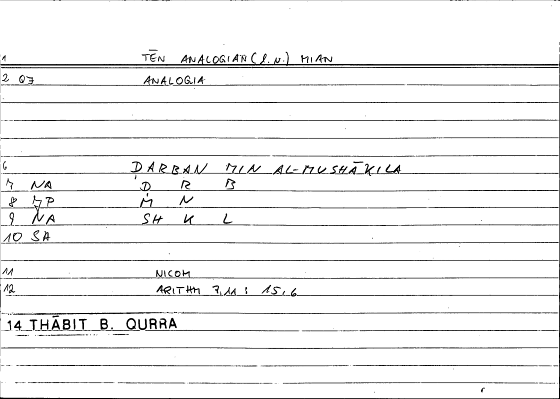 1 TĒN ANALOGIAN (S.N.) MIAN
2 07 ANALOGIA
6 ḌARBAN MIN AL-MUSHĀKILA
7 NA Ḍ R B
8 MP M N
9 NA SH K L
10 SA
11 NICOM
12 ARITHM 7,11 : 15,6
14 THĀBIT B. QURRA